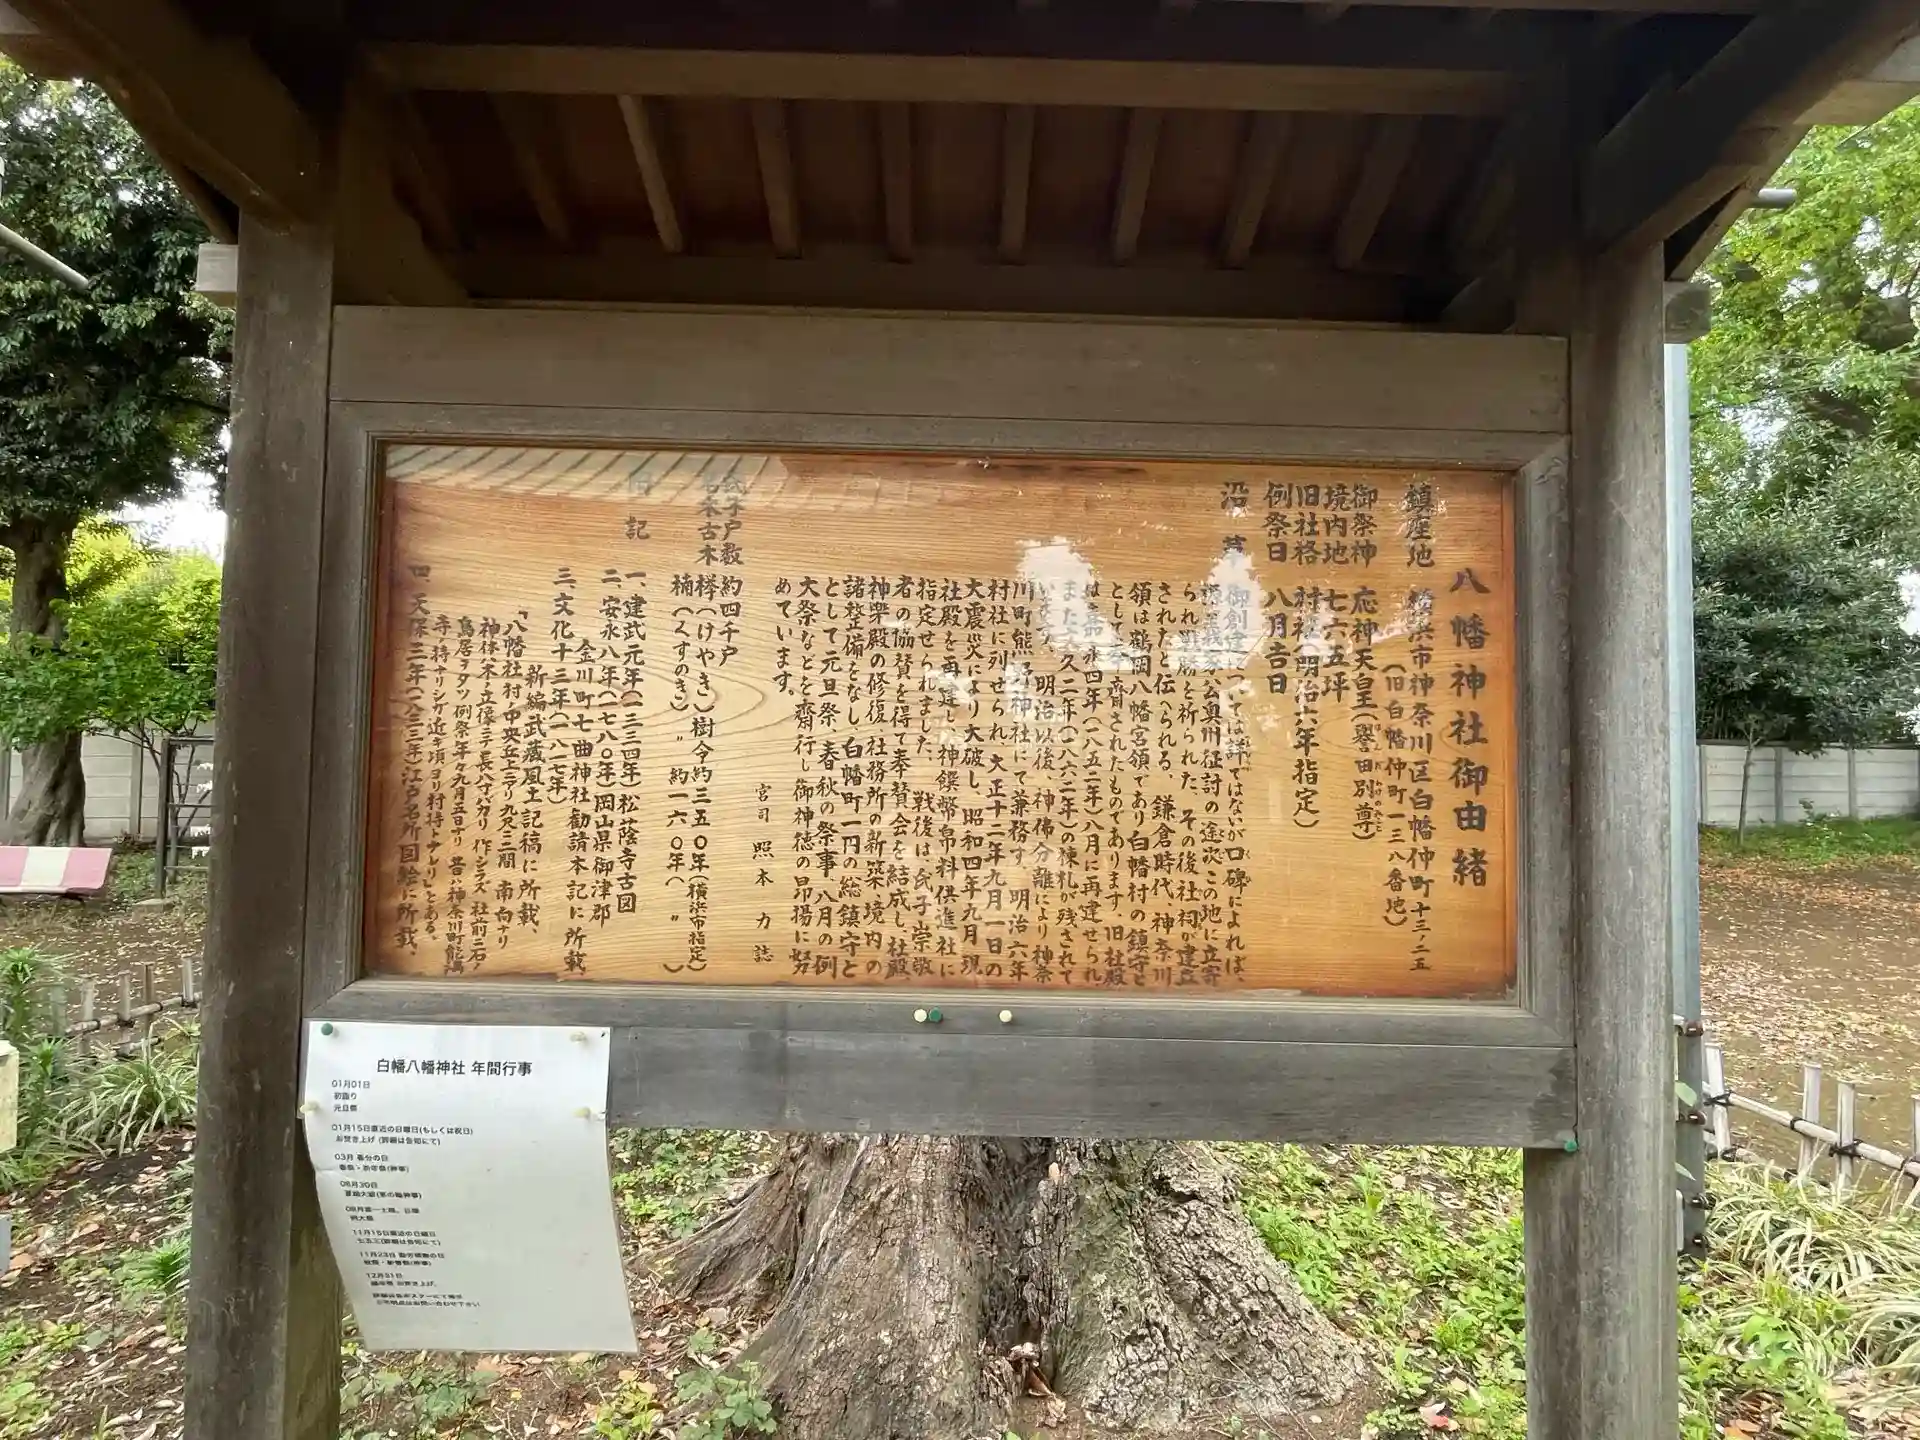 八幡神社御由緒
鎮座地 横浜市神奈川区白幡仲町十三ノ二五
(旧白幡仲町一三八番地)
御祭神 応神天皇(誉田別尊)
境内地 七六五坪
旧社格 村社(明治六年指定)
例祭日 八月吉日
沿革 御創建については詳ではないが口碑によれば、
源義家公奥州征討の途次この地に立寄
られ戦勝を祈られた、その後社祠が建立
されたと伝へられる、鎌倉時代、神奈川
領は鶴岡八幡宮領であり白幡村の鎮守と
として奉齋されたものであります、旧社殿
は嘉永四年(一八五二年)八月に再建せられ、
また文久二年(一八六二年)の棟札が残されて
います、明治以後、神佛分離により神奈
川町熊野神社にて兼務す、明治六年
村社に列せられ、大正十二年九月一日の
大震災により大破し、昭和四年九月現
社殿を再建し神饌幣帛料供進社に
指定せられました、戦後は、氏子崇敬
者の協賛を得て奉賛会を結成し、社殿、
神樂殿の修復、社務所の新築、境内の
諸整備をなし、白幡町一円の総鎮守と
として元旦祭、春秋の祭事、八月の例
大祭などを齋行し御神徳の昂揚に努
めています。
宮司 照本 力 誌
氏子戸数 約四千戸
名木古木 欅(けやき)樹令約三五〇年(横浜市指定)
楠(くすのき) 〃 約一六〇年( 〃 )
旧記
一、建武元年(一三三四年)松蔭寺古図
二、安永八年(一七八〇年)岡山県御津郡
金川町七曲神社勧請本記に所載
三、文化十三年(一八一七年)
新編武蔵風土記稿に所載、
「八幡社村ノ中央丘上ニアリ九尺ニ三間 南向ナリ
神体、木ノ立像ニテ長八寸バカリ 作シラズ 社前ニ石ノ
鳥居ヲタツ例祭年々九月五日ナリ 昔ハ神奈川町能満
寺持ナリシガ近キ頃ヨリ村持トナレリ」とある。
四、天保三年(一八三三年)江戸名所図絵に所載、
白幡八幡神社 年間行事
01月01日
初詣り
元旦祭
01月15日直近の日曜日(もしくは祝日)
お焚き上げ (詳細は告知にて)
03月 春分の日
春祭・祈年祭(神事)
06月30日
夏越大祓(茅の輪神事)
08月第一土曜、日曜
例大祭
11月15日直近の日曜日
七五三(詳細は告知にて)
11月23日 勤労感謝の日
秋祭・新嘗祭(神事)
12月31日